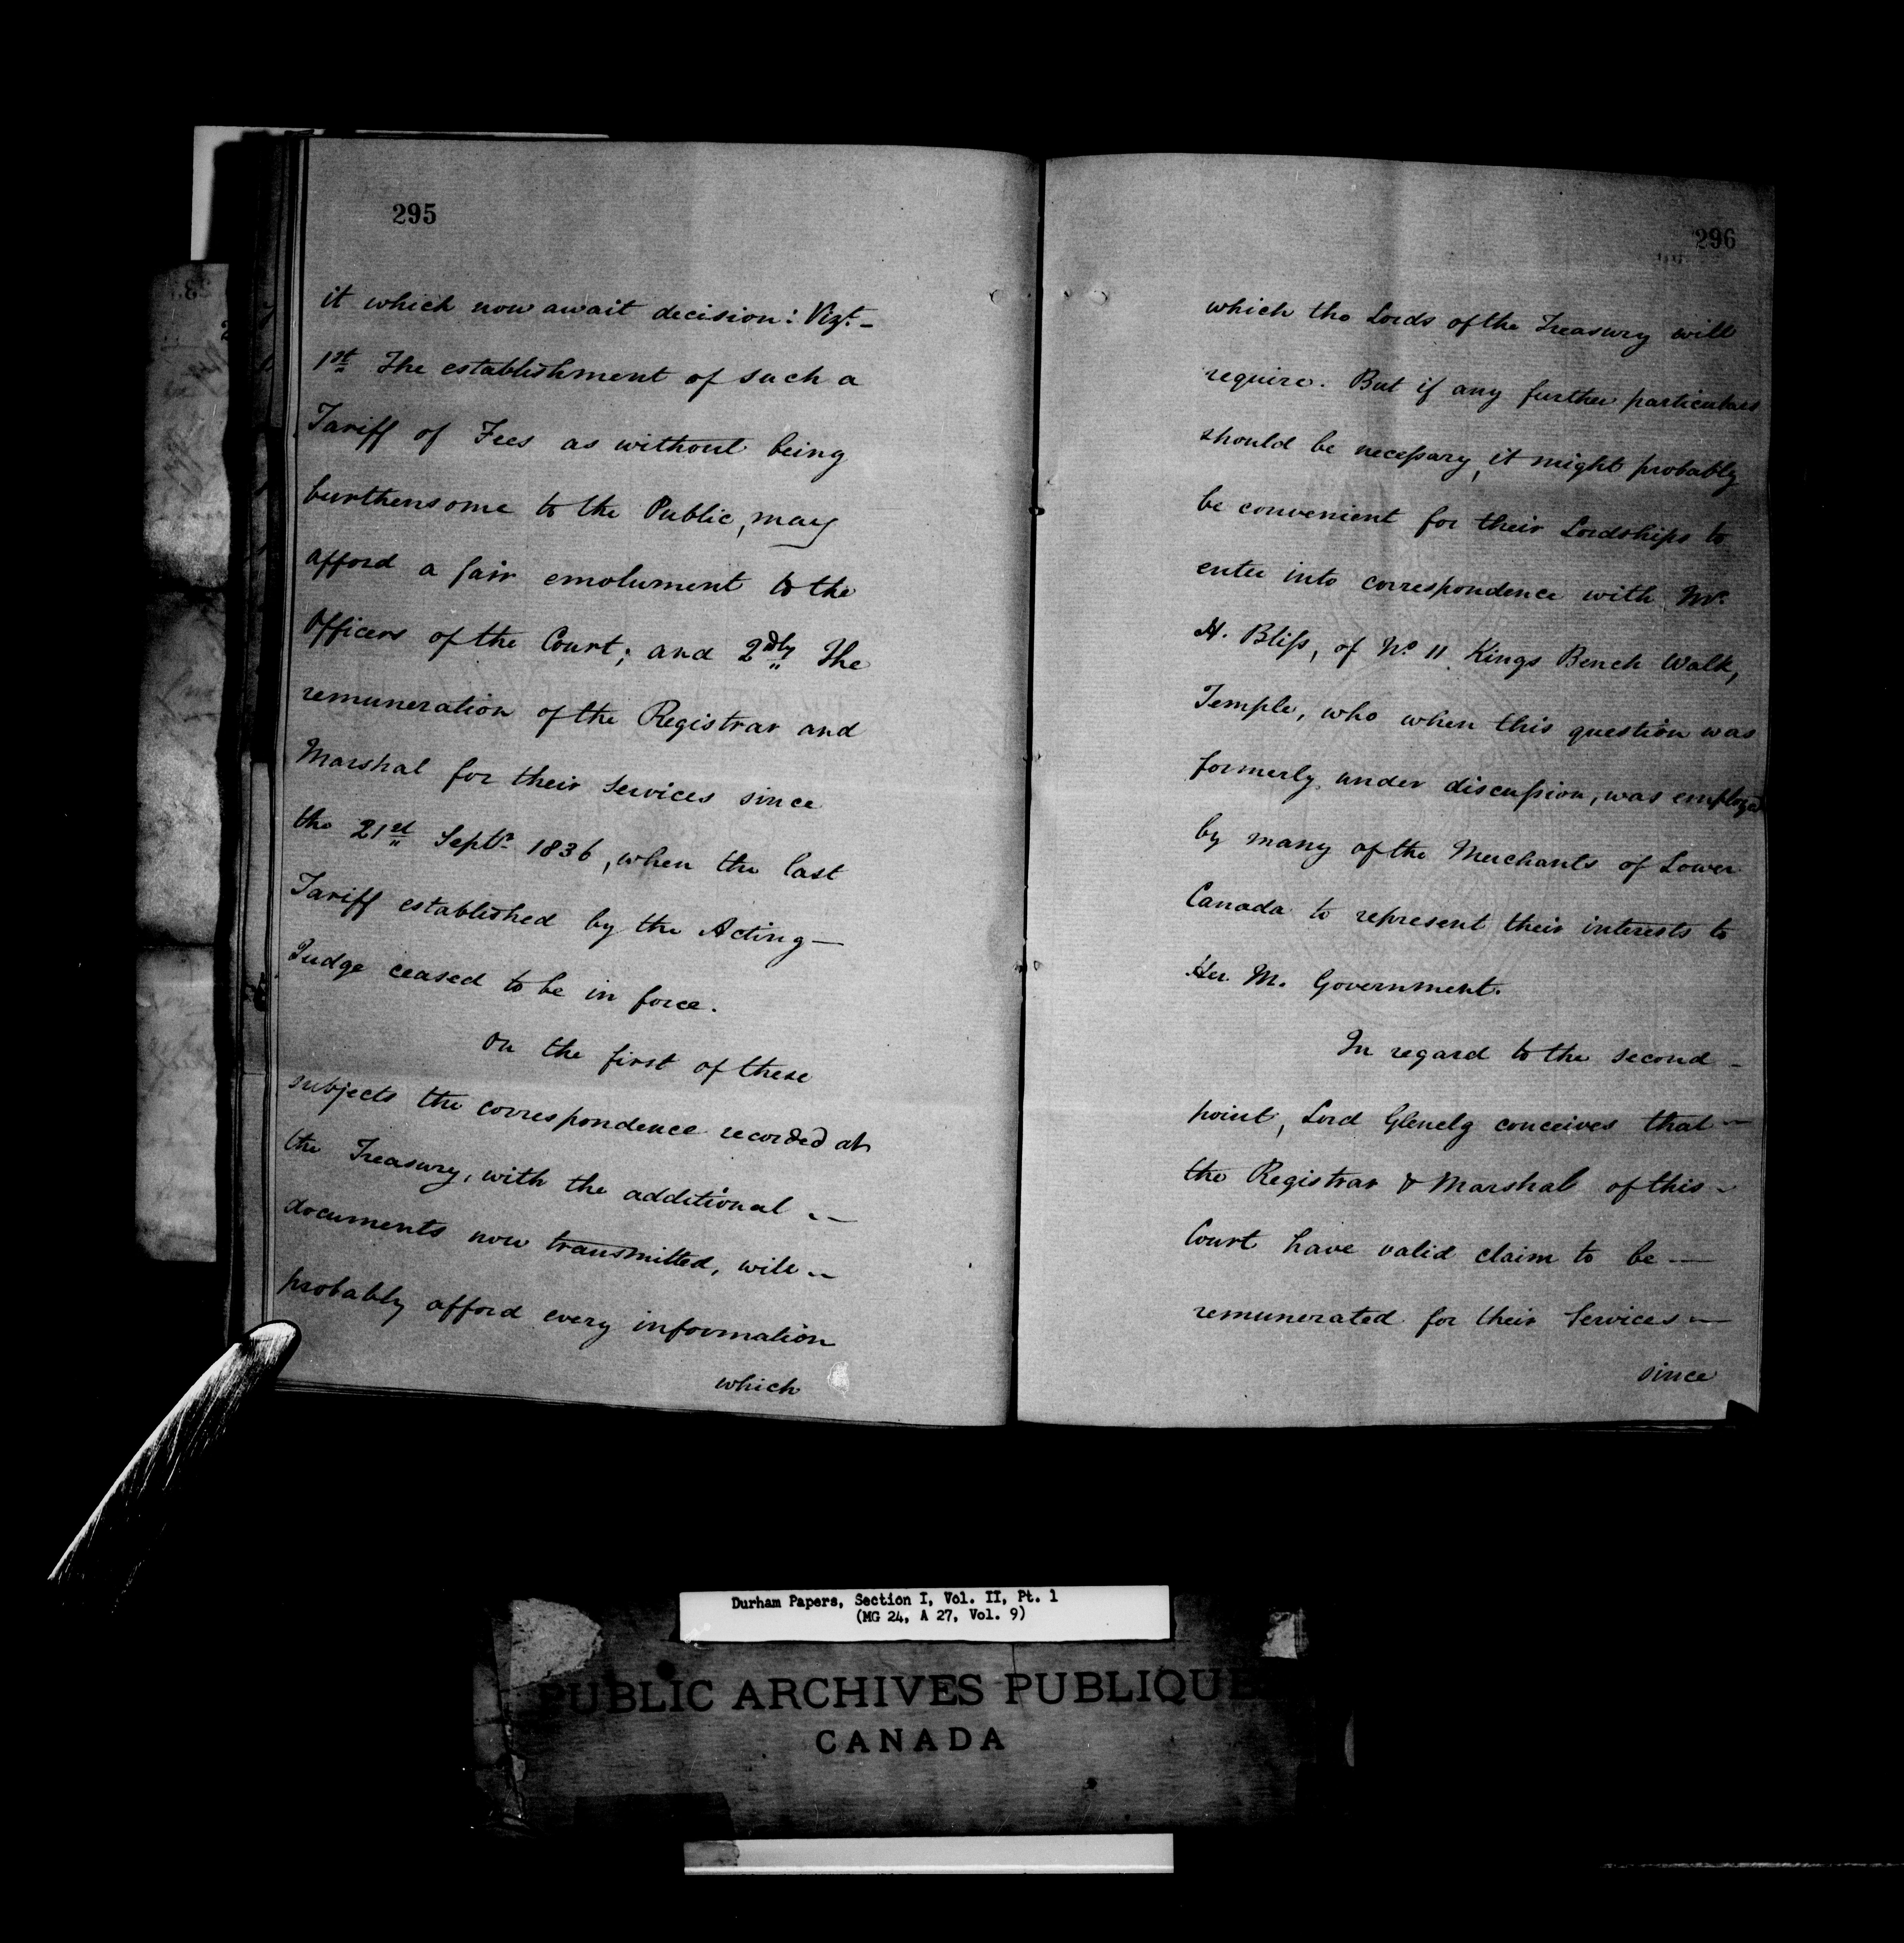 295
it which now await decision: Vizt. –
1st The establishment of such a
Tariff of Fees as without being
burthensome to the Public, may
afford a fair emolument to the
Officers of the Court; and 2dly The
remuneration of the Registrar and
Marshal for their Services since
the 21st Septr 1836, when the last
Tariff established by the Acting –
Judge ceased to be in force.
On the first of these
subjects the correspondence recorded at
the Treasury, with the additional –
documents now transmitted, will –
probably afford every information
which
296
which the Lords of the Treasury will
require. But if any further particulars
should be necessary, it might probably
be convenient for their Lordships to
enter into correspondence with Mr.
H. Bliss, of No 11 Kings Bench Walk,
Temple, who when this question was
formerly under discussion, was employed
by many of the Merchants of Lower
Canada to represent their interests to
Her M. Government.
In regard to the second –
point, Lord Glenelg conceives that –
the Registrar & Marshal of this –
Court have valid claim to be –
remunerated for their Services –
since
Durham Papers, Section I, Vol. II, Pt. 1
(MG 24, A 27, Vol. 9)
PUBLIC ARCHIVES PUBLIQUE
CANADA